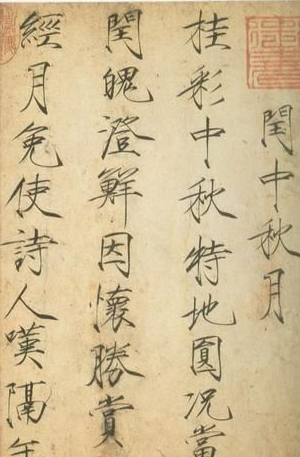 閏中秋月
桂彩中秋特地圓况當
閏魄澄鮮因懷勝賞
經月免使詩人嘆隔年